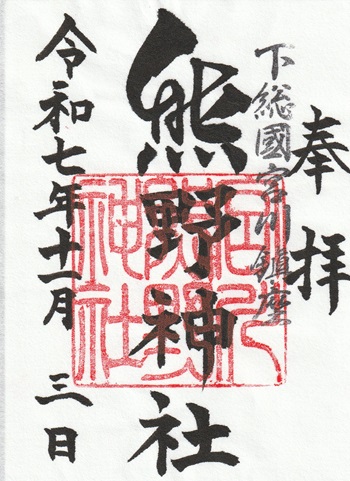 奉拝
下総國宮川鎮座
熊野神社
令和七年十一月三日